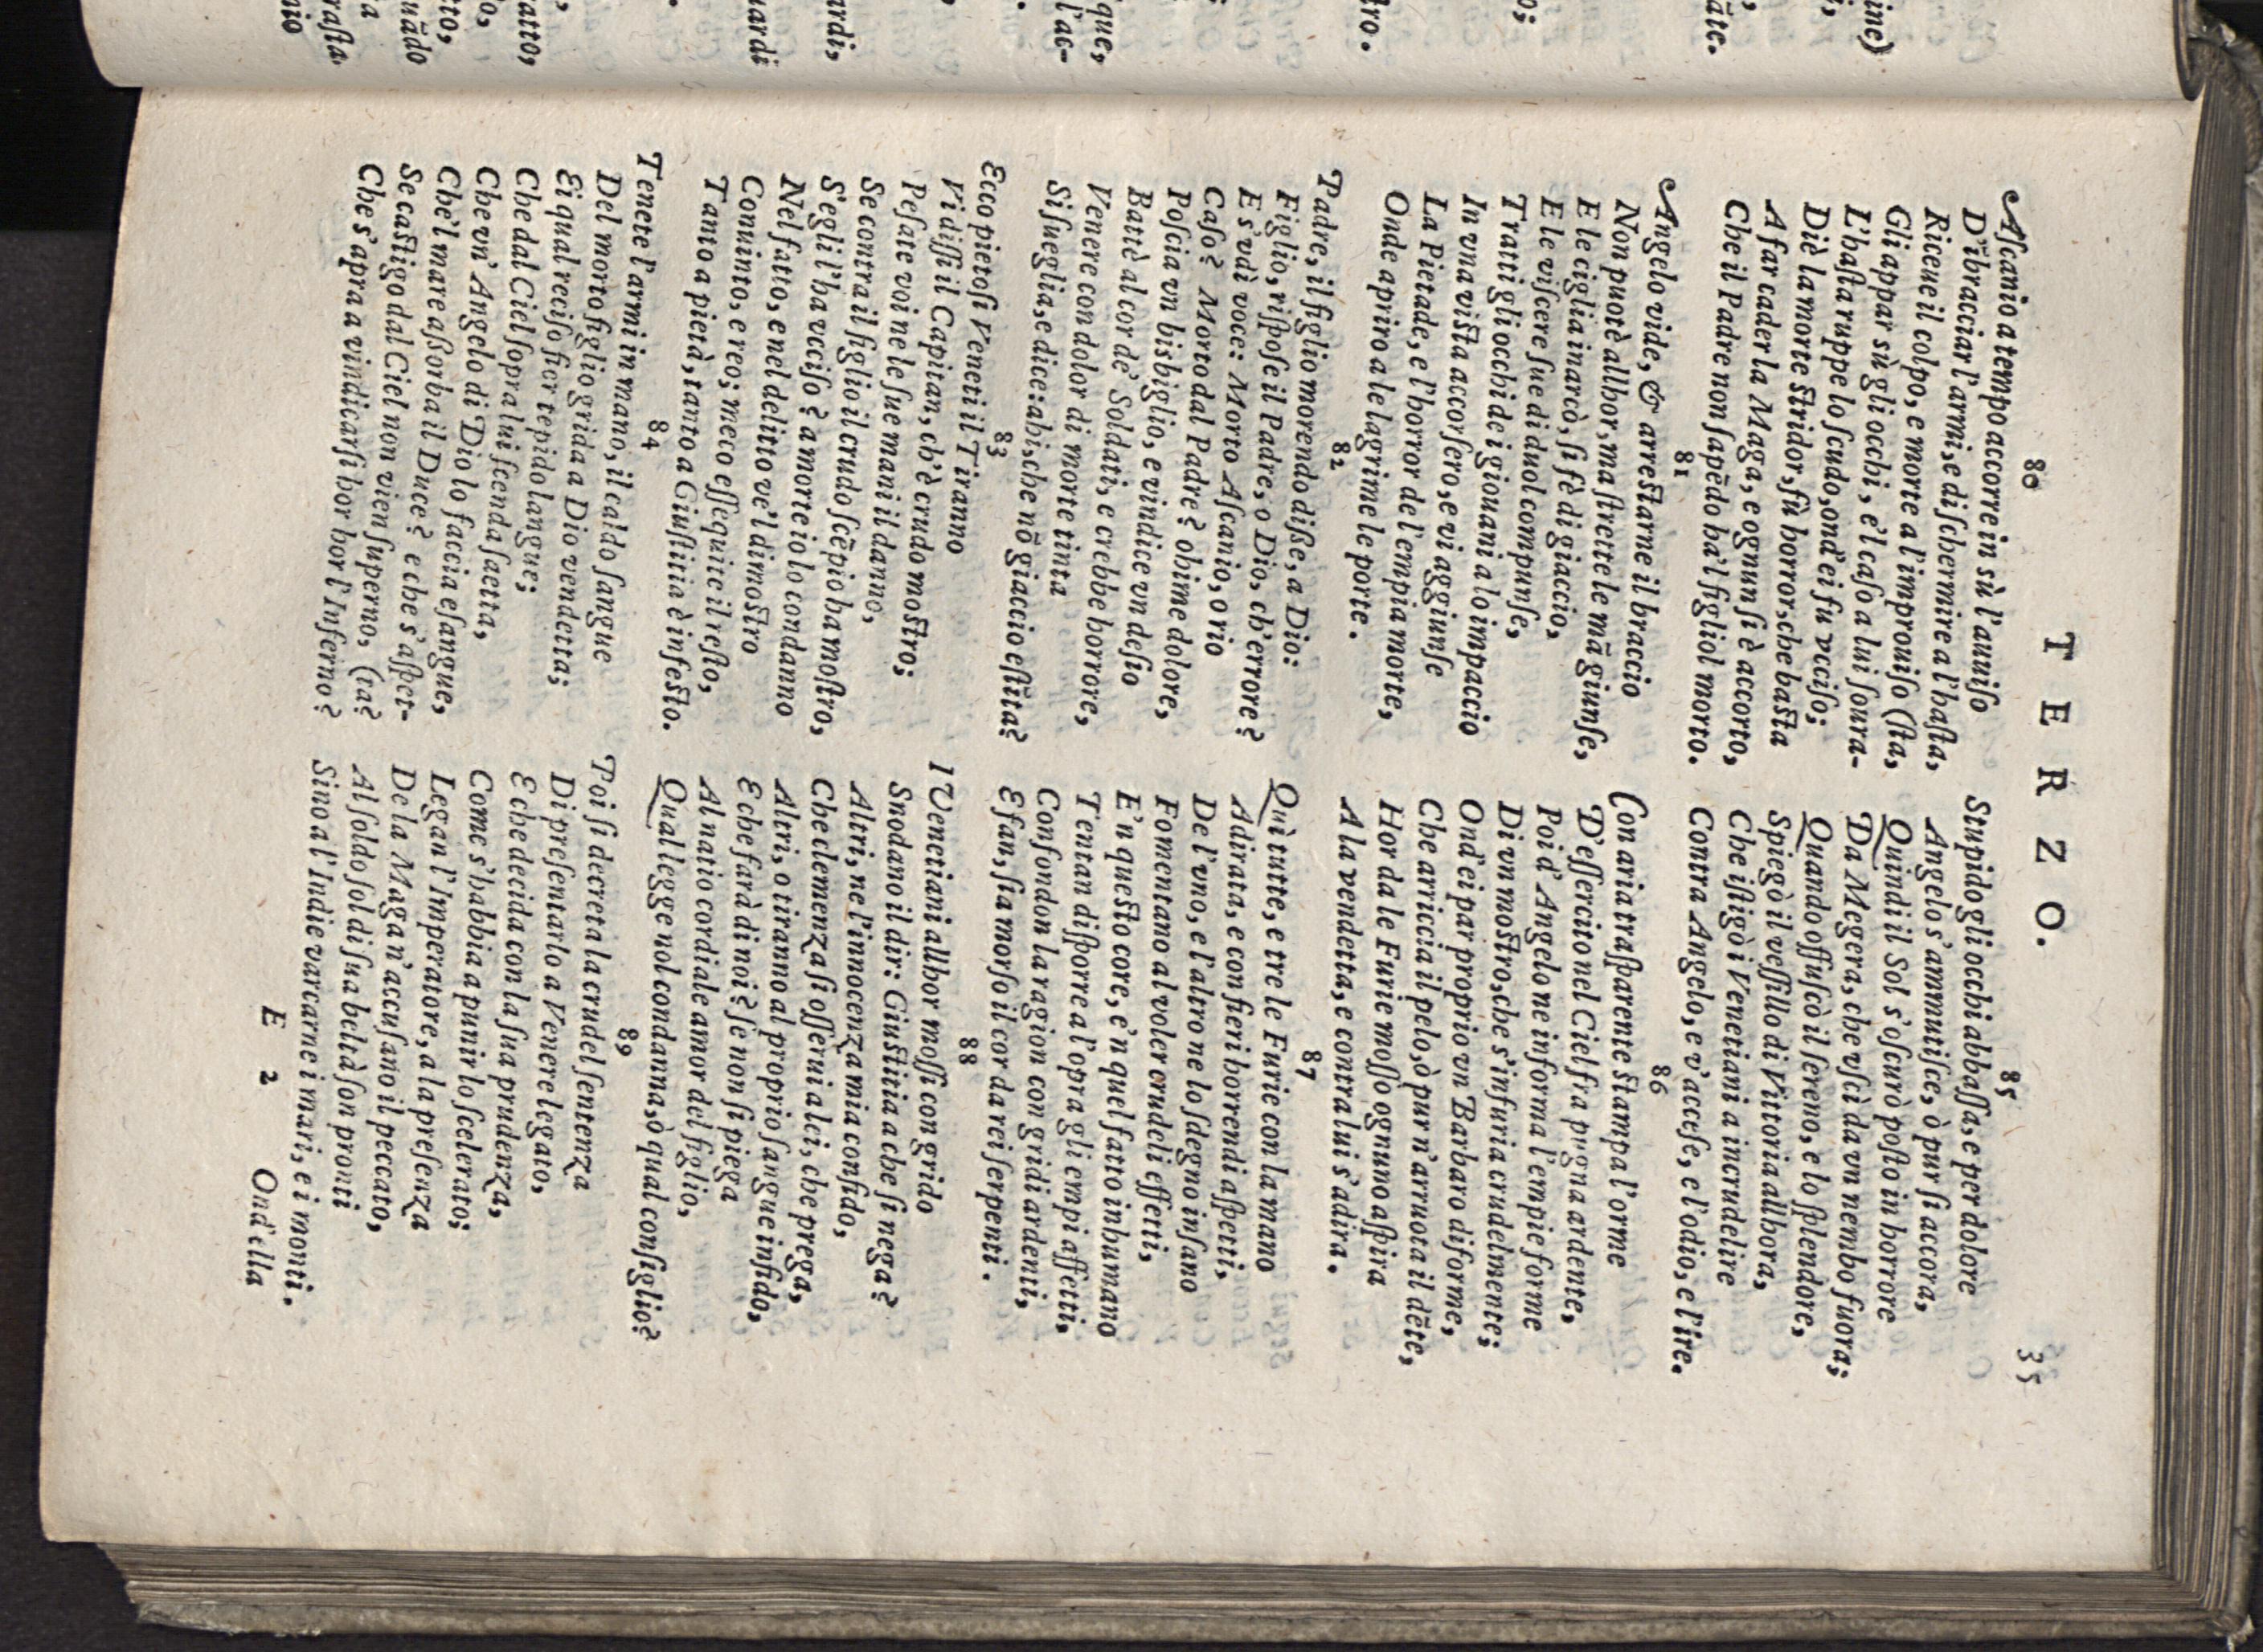 TERZO.
35
80
Aſcanio a tempo accorre in sù l'auuiſo
D'ibracciar l'armi, e di ſchermire a l'haſta,
Riceue il colpo, e morte a l'improuiſo (ſta,
Gli appar sù gli occhi, e'l caſo a lui ſoura-
L'haſta ruppe lo ſcudo, ond'ei fu vcciſo;
Diè la morte ſtridor, fù horror, che baſta
A far cader la Maga, e ognun ſi è accorto,
Che il Padre non ſapēdo hà'l figliol morto.
81
Angelo vide, & arreſtarne il braccio
Non puotè allhor, ma ſtrette le mā giunſe,
E le ciglia inarcò, ſi fè di giaccio,
E le viſcere ſue di duol compunſe,
Tratti gli occhi dei giouani a lo impaccio
In vna viſta accorſero, e vi aggiunſe
La Pietade, e l'horror de l'empia morte,
Onde apriro a le lagrime le porte.
82
Padre, il figlio morendo diſe, a Dio:
Figlio, riſpoſe il Padre, o Dio, ch'errore?
E s'vdì voce: Morto Aſcanio, o rio
Caſo? Morto dal Padre? ohime dolore,
Poſcia vn bisbiglio, e vindice vn deſio
Battè al cor de' Soldati, e crebbe horrore,
Venere con dolor di morte tinta
Si ſueglia, e dice: ahi, che nō giaccio eſtīta?
83
Ecco pietoſi Veneti il Tiranno
Vi diſſi il Capitan, ch'è crudo moſtro;
Peſate voi ne le ſue mani il danno,
Se contra il figlio il crudo ſcēpio ha moſtro,
S'egli l'ha vcciſo? a morte io lo condanno
Nel fatto, e nel delitto ve'l dimoſtro
Conuinto, e reo; meco eſſequite il reſto,
Tanto a pietà, tanto a Giuſtitia è infeſto.
84
Tenete l'armi in mano, il caldo ſangue
Del morto figlio grida a Dio vendetta;
Ei qual reciſo fior tepido langue;
Che dal Ciel ſopra lui ſcenda ſaetta,
Che vn' Angelo di Dio lo faccia eſangue,
Che'l mare aſſorba il Duce? e che s'aſpet-
Se caſtigo dal Ciel non vien ſuperno, (ta?
Che s'apra a vindicarſi hor hor l'Inferno?
85
Stupido gli occhi abbaſſa, e per dolore
Angelo s'ammutiſce, ò pur ſi accora,
Quindi il Sol s'oſcurò poſto in horrore
Da Megera, che vſcì da vn nembo fuora;
Quando offuſcò il ſereno, e lo ſplendore,
Spiegò il veſſillo di Vittoria allhora,
Che iſtigò i Venetiani a incrudelire
Contra Angelo, e v'acceſe, e l'odio, e l'ire.
86
Con aria traſparente ſtampa l'orme
D'eſſercito nel Ciel fra pugna ardente,
Poi d'Angelo ne informa l'empie forme
Di vn moſtro, che s'infuria crudelmente;
Ond'ei par proprio vn Barbaro diforme,
Che arriccia il pelo, ò pur n'arruota il dēte,
Hor da le Furie moſſo ognuno aſpira
A la vendetta, e contra lui s'adira.
87
Quì tutte, e tre le Furie con la mano
Adirata, e con fieri horrendi aſpetti,
De l'vno, e l'altro ne lo ſdegno inſano
Fomentano al voler crudeli effetti,
E'n queſto core, e'n quel fatto inhumano
Tentan diſporre a l'opra gli empi affetti,
Confondon la ragion con gridi ardenti,
E fan, ſia morſo il cor da rei ſerpenti.
88
I Venetiani allhor moſſi con grido
Snodano il dir: Giuſtitia a che ſi nega?
Altri, ne l'innocenza mia confido,
Che clemenza ſi oſſerui a lei, che prega,
Altri, o tiranno al proprio ſangue infido,
E che farà di noi? ſe non ſi piega
Al natio cordiale amor del figlio,
Qual legge nol condanna, ò qual conſiglio?
89
Poi ſi decreta la crudel ſentenza
Di preſentarlo a Venere legato,
E che decida con la ſua prudenza,
Come s'habbia a punir lo ſcelerato;
Legan l'Imperatore, a la preſenza
De la Maga n'accuſano il peccato,
Al ſoldo ſol di ſua beltà ſon pronti
Sino a l'Indie varcarne i mari, e i monti.
E 2
Ond'ella
ine)
āte.
o;
ro.
que,
l'ac-
ardi,
uardi
ratto,
o,
tto,
uādo
a
raſta
nio